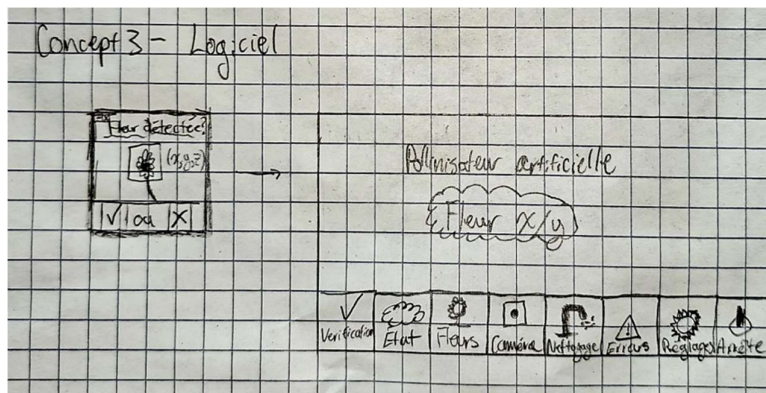 Concept 3 - Logiciel
Fleur détectée?
(x,y,z)
✓ ou X
Pollinisateur artificielle
Fleur x/y
Vérification
État
Fleurs
Caméra
Nettoyage
Erreurs
Réglages
Arrête